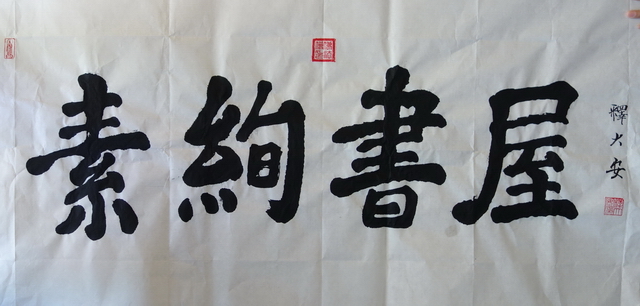 素絢書屋
釋大安